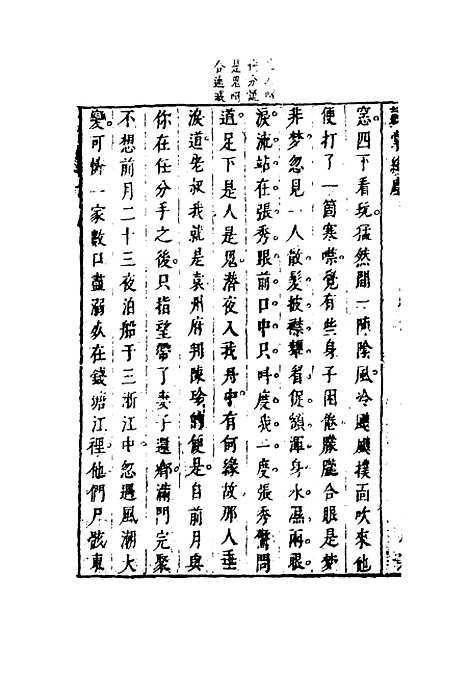 窓四下看玩猛然間一陣陰風冷颼颼撲面吹來他
便打了一箇寒噤覺有些身子困倦朦朧合眼是夢
非梦忽見一人散髪披襟顰眉促額渾身水濕兩眼
淚流站在張秀跟前口中只呌度我一度張秀驚問
道足下是人是鬼潜夜入我舟中有何緣故那人垂
淚道老叔我就是袁州府判陳珍的便是自前月與
你在任分手之後只指望帶了妻子還鄉滿門完聚
不想前月二十三夜泊船于三浙江中忽遇風潮大
變可怜一家數口盡溺死在錢塘江裡他們尸骸東